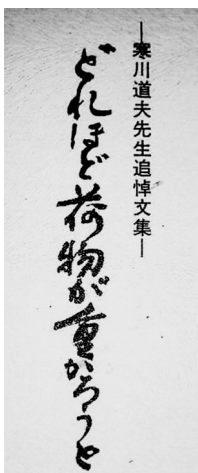 —寒川道夫先生追悼文集—
どれほど荷物が重かろうと